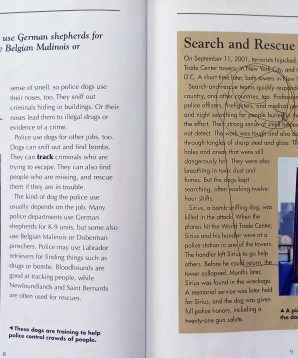 use German shepherds for
Belgian Malinois or
sense of smell, so police dogs use
their noses, too. They sniff out
criminals hiding in buildings. Or their
noses lead them to illegal drugs or
evidence of a crime.
Police use dogs for other jobs, too.
Dogs can sniff out and find bombs.
They can track criminals who are
trying to escape. They can also find
people who are missing, and rescue
them if they are in trouble.
The kind of dog the police use
usually depends on the job. Many
police departments use German
shepherds for K-9 units, but some also
use Belgian Malinois or Doberman
pinschers. Police may use Labrador
retrievers for finding things such as
drugs or bombs. Bloodhounds are
good at tracking people, while
Newfoundlands and Saint Bernards
are often used for rescues.
◄ These dogs are training to help
police control crowds of people.
8
Search and Rescue
On September 11, 2001, terrorists hijacked
Trade Center towers, in New York City, and
D.C. A short time later, both towers in New
Search and rescue teams quickly responded
country, and other countries, too. Professional
police officers, firefighters, and medical
and night searching for people buried
the effort. Their strong sense of smell
not detect. The work was tough and also
through tangles of sharp steel and glass. The
holes and areas that were still
dangerously hot. They were also
breathing in toxic dust and
fumes. But the dogs kept
searching, often working twelve
hour shifts.
Sirius, a bomb-sniffing dog, was
killed in the attack. When the
planes hit the World Trade Center,
Sirius and his handler were at a
police station in one of the towers.
The handler left Sirius to go help
others. Before he could return, the
tower collapsed. Months later,
Sirius was found in the wreckage.
A memorial service was later held
for Sirius, and the dog was given
full police honors, including a
twenty-one gun salute.
▲ A pi
the do
9